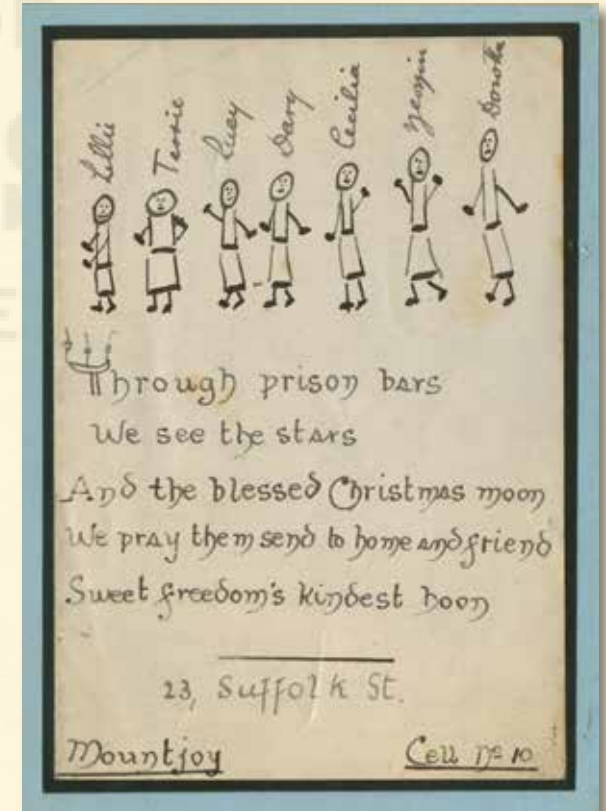 Lillie Tessie Lucy Dary Cecilia Dorothe
Through prison bars
We see the stars
And the blessed Christmas moon
We pray them send to home and friend
Sweet freedom's kindest boon
23, Suffolk St.
Mountjoy Cell No 10